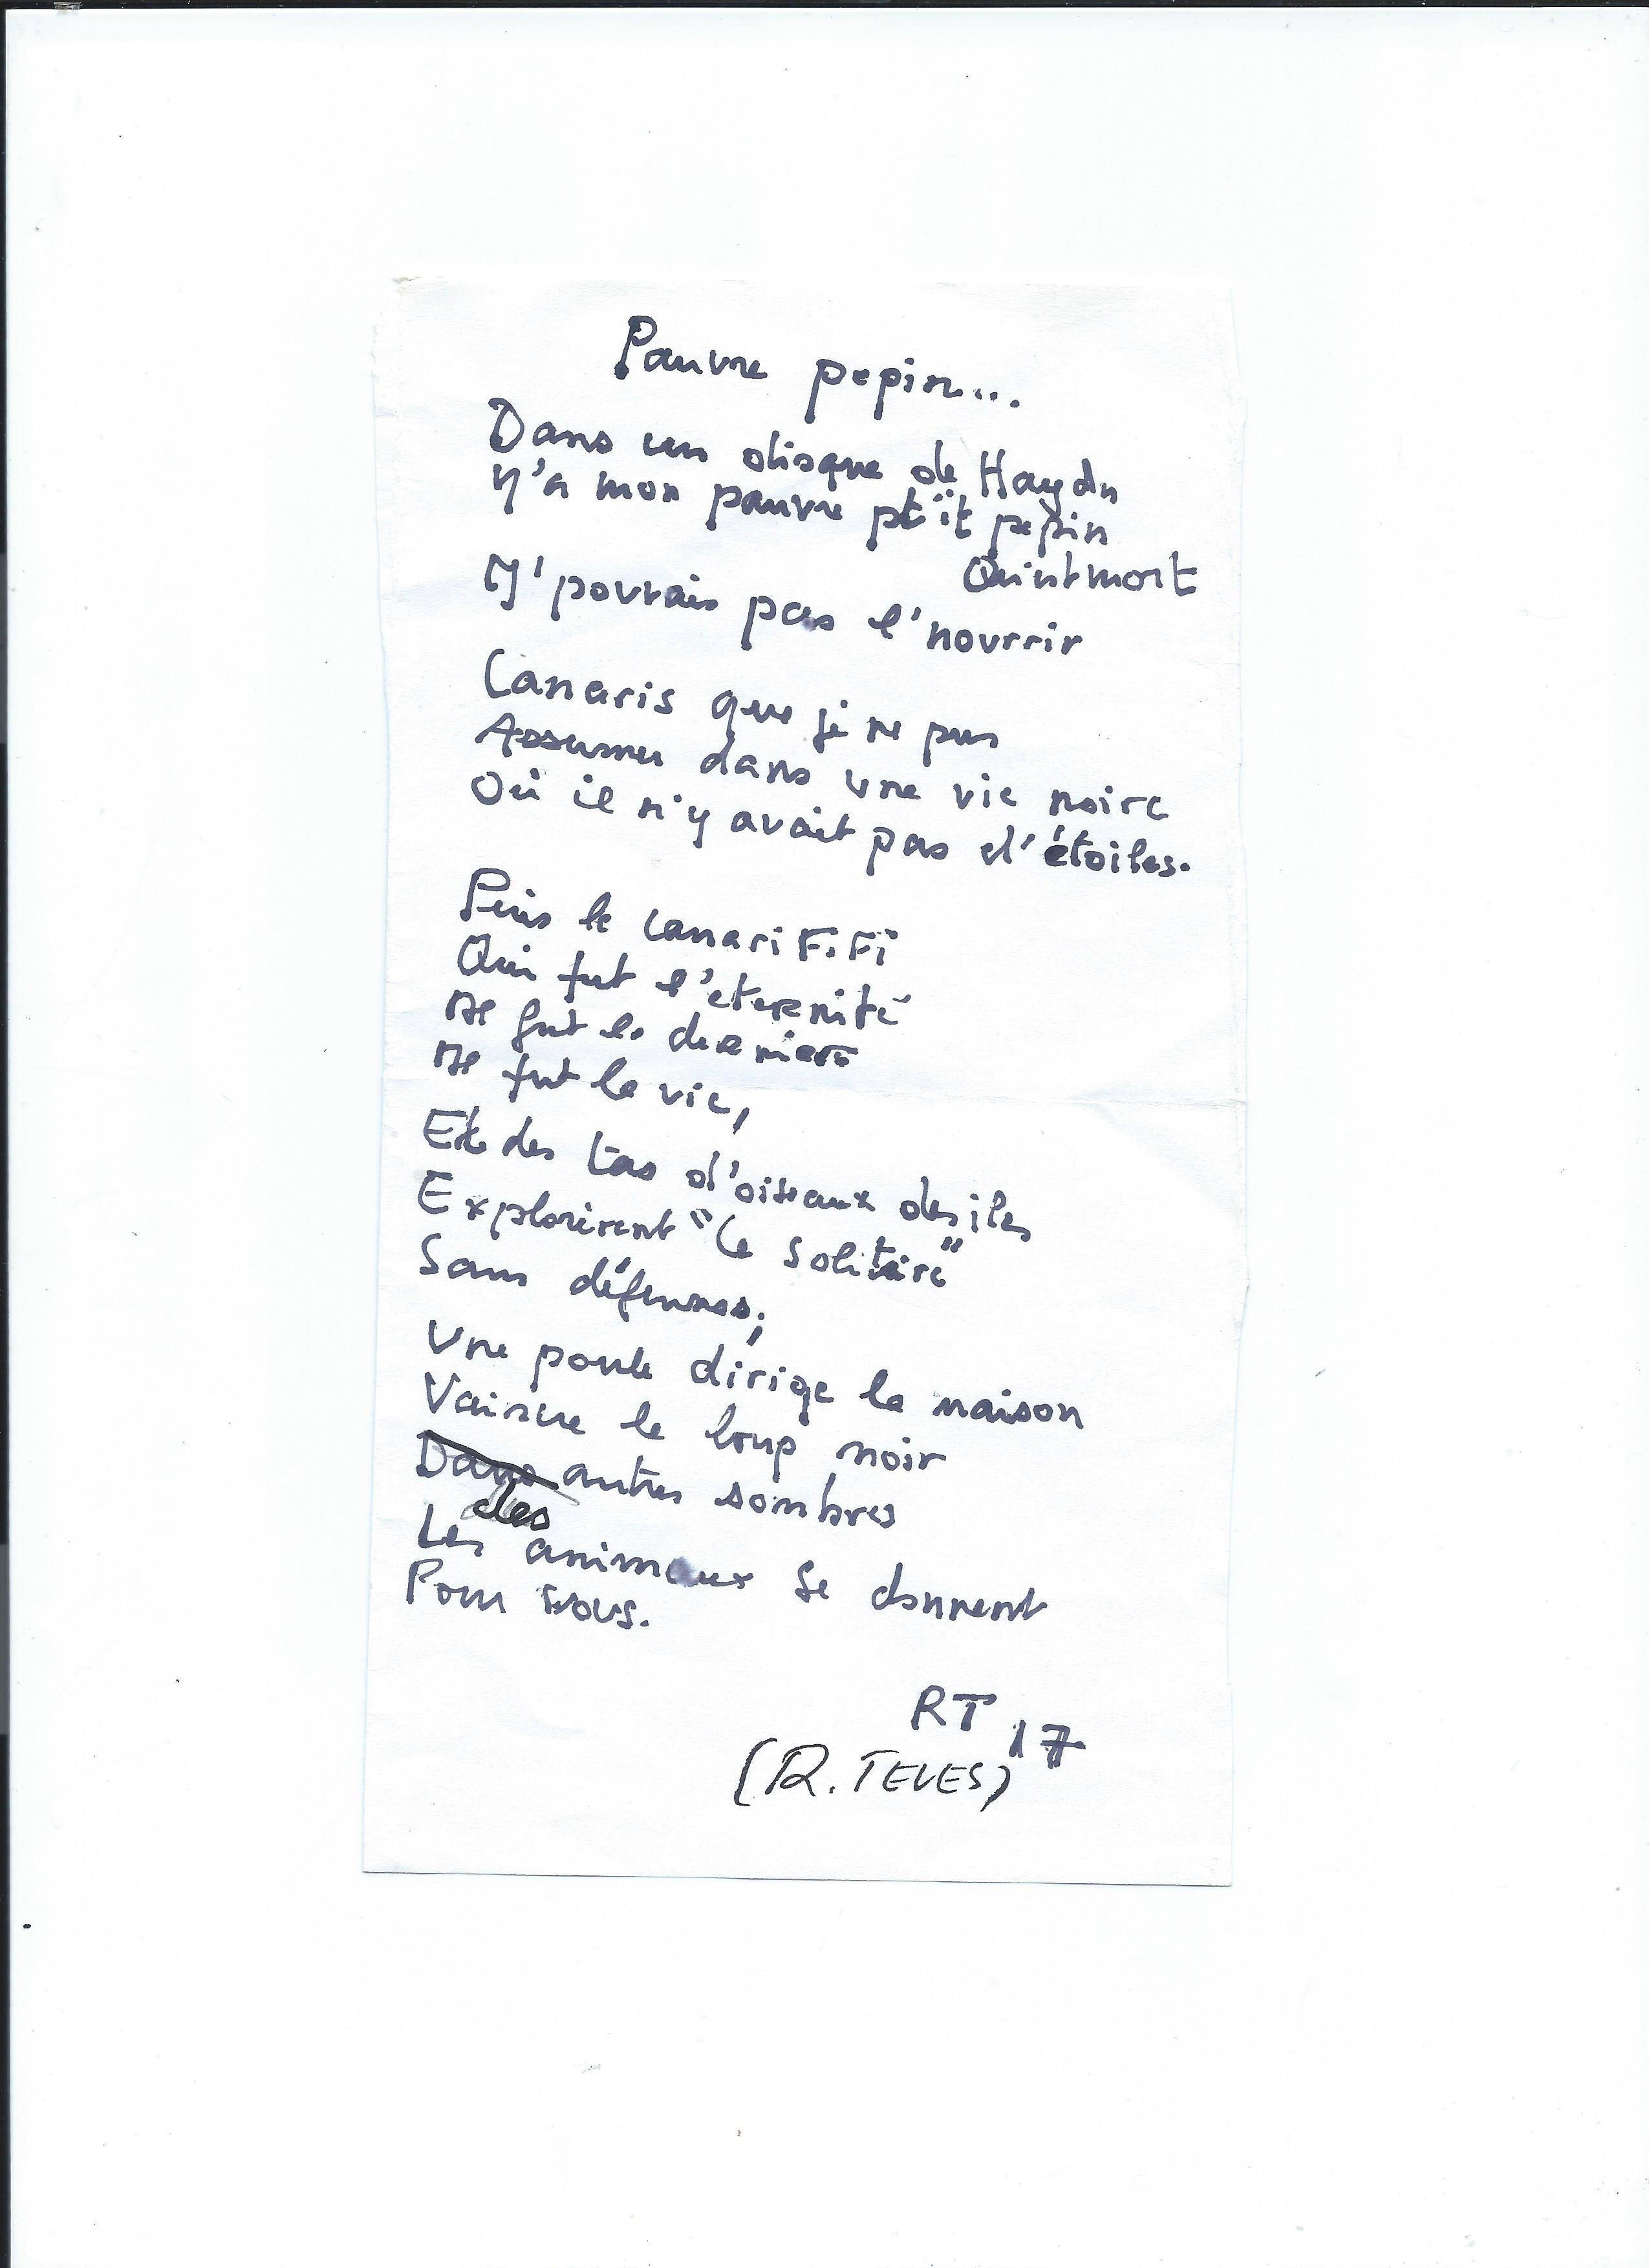 Pauvre pepin...
Dans un disque de Haydn
Y'a mon pauvre pt'it pepin
Qui est mort
J'pouvais pas l'nourrir
Canaris que je ne pus
Assumer dans une vie noire
Où il n'y avait pas d'étoiles.
Puis le canari FiFi
Qui fut l'eternité
Il fut le dernier
Il fut la vie,
Et des tas d'oiseaux des iles
Explorèrent "Le solitaire"
Sans défenses;
Une poule dirige la maison
Vaincue le loup noir
Dans antres sombres
des
Les animaux se donnent
Pour vous.
RT 17
(R. TELES)